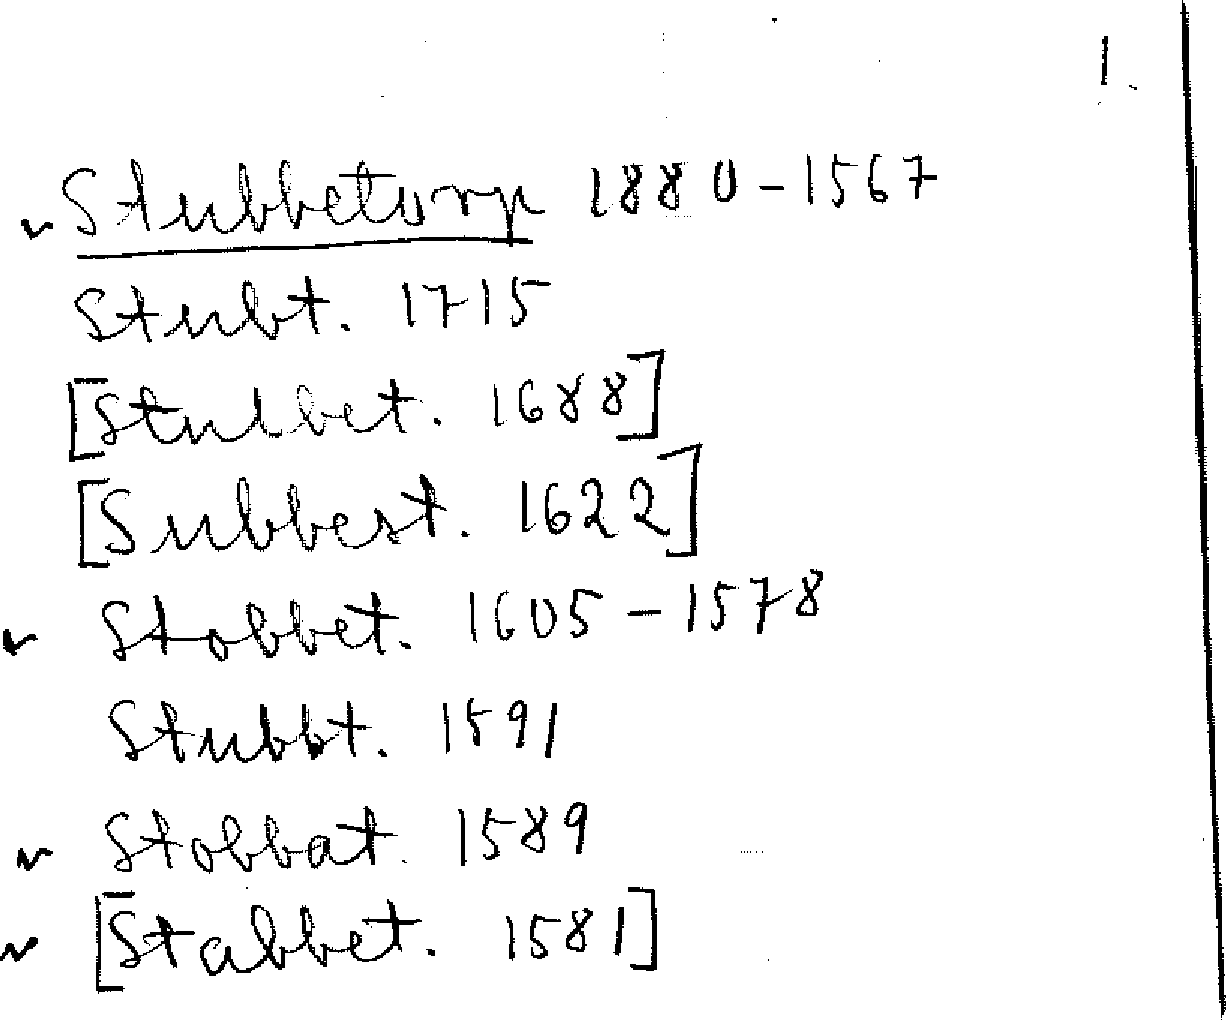 1.
Stubbetorp 1880-1567
Stubt. 1715
[Stulbet. 1688]
[Subbest. 1622]
Stobbet. 1605-1578
Stubbt. 1591
Stobbat. 1589
[Stabbet. 1581]